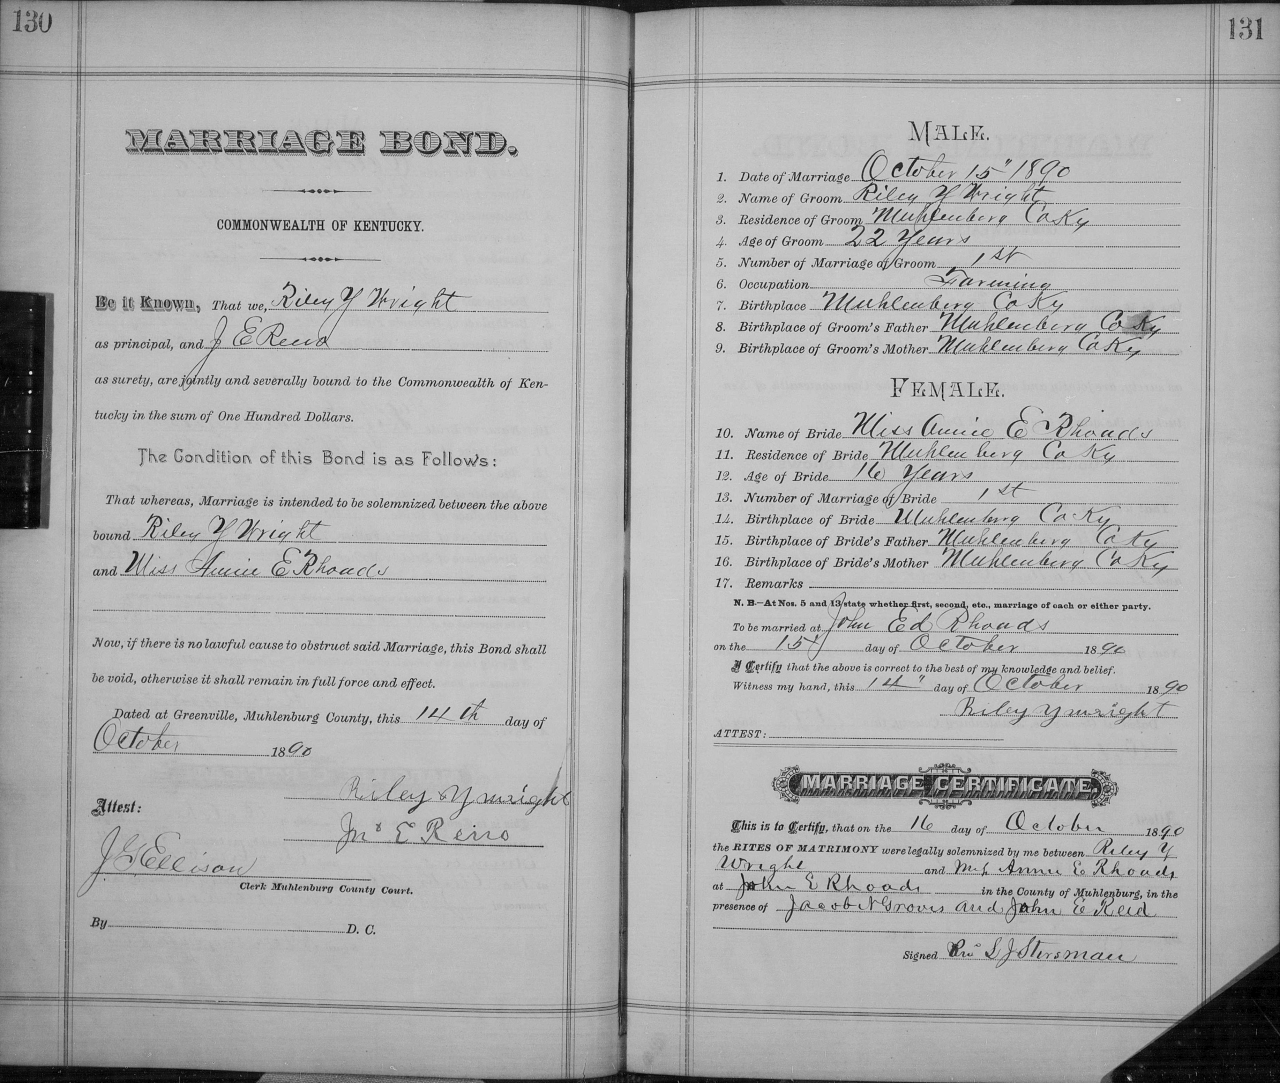 130
MARRIAGE BOND.
COMMONWEALTH OF KENTUCKY.
Be it Known, That we, Riley Y Wright
as principal, and J E Reno
as surety, are jointly and severally bound to the Commonwealth of Ken-
tucky in the sum of One Hundred Dollars.
The Condition of this Bond is as Follows:
That whereas, Marriage is intended to be solemnized between the above
bound Riley Y Wright
and Miss Annie E Rhoads
Now, if there is no lawful cause to obstruct said Marriage, this Bond shall
be void, otherwise it shall remain in full force and effect.
Dated at Greenville, Muhlenburg County, this 14th day of
October 1890
Riley Y wright
Attest:
Jno E Reno
J G Ellison
Clerk Muhlenburg County Court.
By D. C.
131
MALE.
1. Date of Marriage October 15" 1890
2. Name of Groom Riley Y Wright
3. Residence of Groom Muhlenberg Co Ky
4. Age of Groom 22 Years
5. Number of Marriage of Groom 1st
6. Occupation Farming
7. Birthplace Muhlenberg Co Ky
8. Birthplace of Groom's Father Muhlenberg Co Ky
9. Birthplace of Groom's Mother Muhlenberg Co Ky
FEMALE.
10. Name of Bride Miss Annie E Rhoads
11. Residence of Bride Muhlenberg Co Ky
12. Age of Bride 16 Years
13. Number of Marriage of Bride 1st
14. Birthplace of Bride Muhlenberg Co Ky
15. Birthplace of Bride's Father Muhlenberg Co Ky
16. Birthplace of Bride's Mother Muhlenberg Co Ky
17. Remarks
N. B.—At Nos. 5 and 13 state whether first, second, etc., marriage of each or either party.
To be married at John Ed Rhoads
on the 15 day of October 1890
I Certify that the above is correct to the best of my knowledge and belief.
Witness my hand, this 14" day of October 1890
Riley Y wright
ATTEST:
MARRIAGE CERTIFICATE.
This is to Certify, that on the 16 day of October 1890
the RITES OF MATRIMONY were legally solemnized by me between Riley Y
Wright and Annie E Rhoads
at John E Rhoads in the County of Muhlenburg, in the
presence of Jacob N Groves and John E Reid
Signed S J